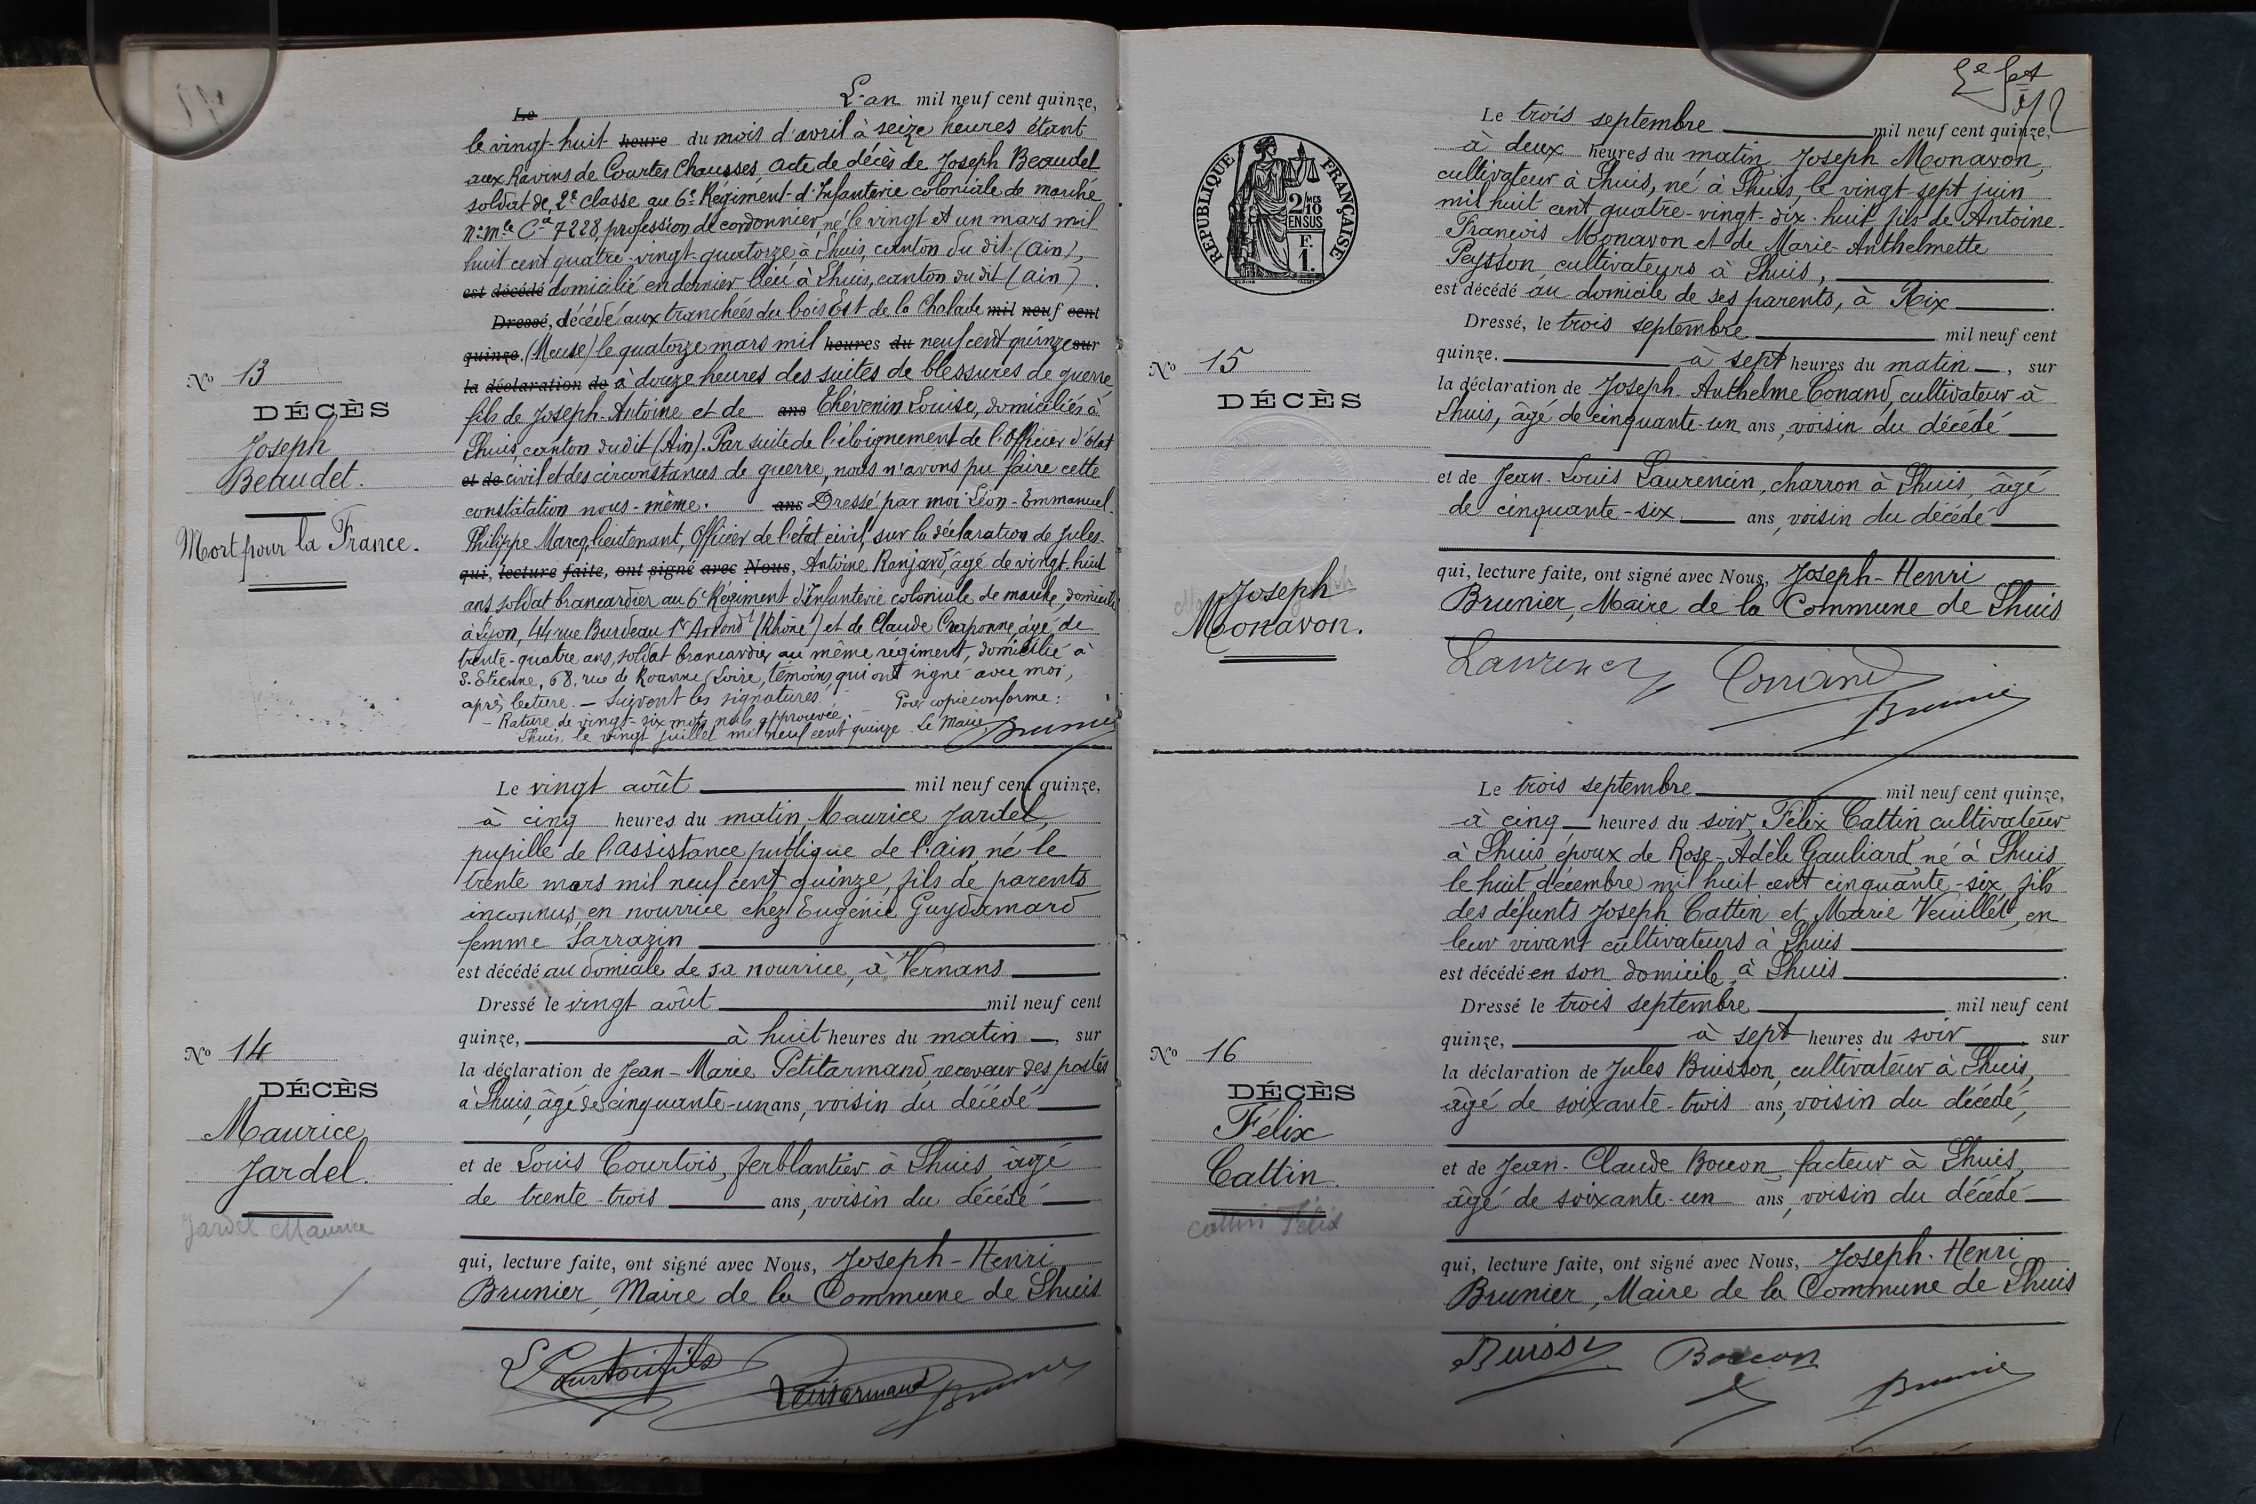 L'an mil neuf cent quinze,
Le
le vingt-huit heure du mois d'avril à seize heures étant
aux Ravins de Courtes Chausses, acte de décès de Joseph Beaudet
soldat de 2e classe au 6e Régiment d'Infanterie coloniale de marche
No mle Ca 7228, profession de cordonnier né le vingt et un mars mil
huit cent quatre-vingt-quatorze à Lhuis, canton du dit (Ain),
est décédé domicilié en dernier lieu à Lhuis, canton du dit (Ain).
Dressé, décédé aux tranchées du bois Est de la Chalade mil neuf cent
quinze. (Meuse) le quatorze mars mil heures du neuf cent quinze sur
la déclaration de à douze heures des suites de blessures de guerre
No 13
DÉCÈS
Joseph
Beaudet.
Mort pour la France.
fils de Joseph-Antoine et de ans Thévenin Louise, domiciliés à
Lhuis, canton dudit (Ain). Par suite de l'éloignement de l'Officier d'état
et de civil et des circonstances de guerre, nous n'avons pu faire cette
constatation nous-même. ans Dressé par moi Léon-Emmanuel-
Philippe Marcq, lieutenant, Officier de l'état civil, sur la déclaration de Jules-
qui, lecture faite, ont signé avec Nous, Antoine Ranjard, âgé de vingt-huit
ans, soldat brancardier au 6e Régiment d'Infanterie coloniale de marche, domicilié
à Lyon, 44 rue Burdeau 1er Arrondt (Rhône) et de Claude Craponne, âgé de
trente-quatre ans, soldat brancardier au même régiment, domicilié à
S. Etienne, 68, rue de Roanne (Loire, témoins qui ont signé avec moi,
après lecture. — Suivent les signatures. Pour copie conforme:
- Rature de vingt-six mots nuls approuvée. -
Lhuis, le vingt juillet mil neuf cent quinze. Le Maire Brunier
Le vingt août mil neuf cent quinze,
à cinq heures du matin, Maurice Jardel,
pupille de l'assistance publique de l'Ain, né le
trente mars mil neuf cent quinze, fils de parents
inconnus, en nourrice chez Eugénie Guydamard
femme Sarrazin
est décédé au domicile de sa nourrice, à Vernans
Dressé le vingt août mil neuf cent
quinze, à huit heures du matin, sur
No 14
DÉCÈS
Maurice
Jardel.
Jardel Maurice
la déclaration de Jean-Marie Petitarmand, receveur des postes
à Lhuis, âgé de cinquante-un ans, voisin du décédé
et de Louis Courtois, ferblantier à Lhuis âgé
de trente-trois ans, voisin du décédé
qui, lecture faite, ont signé avec Nous, Joseph-Henri
Brunier, Maire de la Commune de Lhuis
L Courtois fils Petitarmand Brunier
RÉPUBLIQUE FRANÇAISE
2/10 MES
EN SUS
F.
1.
Le trois septembre mil neuf cent quinze,
à deux heures du matin, Joseph Monavon,
cultivateur à Lhuis, né à Lhuis, le vingt-sept juin
mil huit cent quatre-vingt-dix-huit, fils de Antoine-
François Monavon et de Marie-Anthelmette
Peysson, cultivateurs à Lhuis,
est décédé au domicile de ses parents, à Rix
Dressé, le trois septembre mil neuf cent
quinze. à sept heures du matin, sur
No 15
DÉCÈS
Joseph
Monavon.
la déclaration de Joseph-Anthelme Conand, cultivateur à
Lhuis, âgé de cinquante-un ans, voisin du décédé
et de Jean-Louis Laurencin, charron à Lhuis, âgé
de cinquante-six ans, voisin du décédé
qui, lecture faite, ont signé avec Nous, Joseph-Henri
Brunier, Maire de la Commune de Lhuis
Laurencin Conand
Brunier
Le trois septembre mil neuf cent quinze,
à cinq heures du soir, Félix Cattin, cultivateur
à Lhuis, époux de Rose-Adèle Gauliard, né à Lhuis
le huit décembre mil huit cent cinquante-six, fils
des défunts Joseph Cattin et Marie Veuillet, en
leur vivant cultivateurs à Lhuis
est décédé en son domicile, à Lhuis.
Dressé le trois septembre mil neuf cent
quinze, à sept heures du soir, sur
No 16
DÉCÈS
Félix
Cattin.
Cattin Félix
la déclaration de Jules Buisson, cultivateur à Lhuis,
âgé de soixante-trois ans, voisin du décédé,
et de Jean-Claude Boucon, facteur à Lhuis,
âgé de soixante-un ans, voisin du décédé
qui, lecture faite, ont signé avec Nous, Joseph-Henri
Brunier, Maire de la Commune de Lhuis
Buisson Boucon Brunier